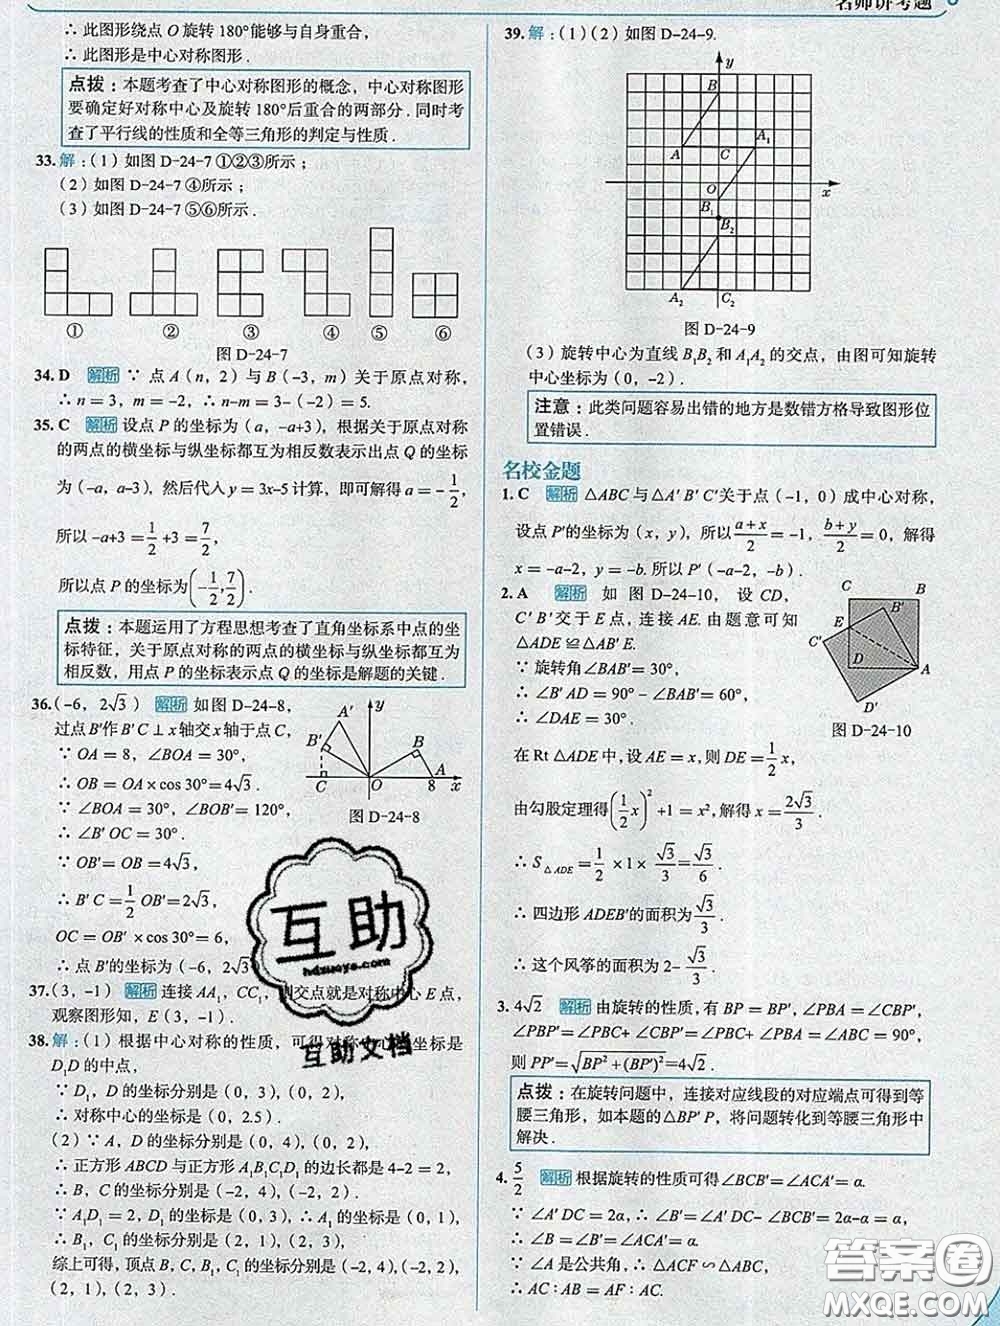 名师讲考题
∴ 此图形绕点 O 旋转 180°能够与自身重合,
∴ 此图形是中心对称图形.
点拨：本题考查了中心对称图形的概念，中心对称图形
要确定好对称中心及旋转 180°后重合的两部分. 同时考
查了平行线的性质和全等三角形的判定与性质.
33. 解：(1) 如图 D-24-7 ①②③所示；
(2) 如图 D-24-7 ④所示；
(3) 如图 D-24-7 ⑤⑥所示.
① ② ③ ④ ⑤ ⑥
图 D-24-7
34. D 解析 ∵ 点 A (n, 2) 与 B (-3, m) 关于原点对称,
∴ n = 3, m = -2, ∴ n-m = 3-(-2) = 5.
35. C 解析 设点 P 的坐标为 (a, -a+3), 根据关于原点对称
的两点的横坐标与纵坐标都互为相反数表示出点 Q 的坐标
为 (-a, a-3), 然后代入 y = 3x-5 计算, 即可解得 a = -1/2,
所以 -a+3 = 1/2 +3 = 7/2,
所以点 P 的坐标为 (-1/2, 7/2).
点拨：本题运用了方程思想考查了直角坐标系中点的坐
标特征，关于原点对称的两点的横坐标与纵坐标都互为
相反数，用点 P 的坐标表示点 Q 的坐标是解题的关键.
36. (-6, 2√3) 解析 如图 D-24-8,
过点 B′作 B′C ⊥ x 轴交 x 轴于点 C,
∵ OA = 8, ∠BOA = 30°,
∴ OB = OA × cos 30° = 4√3.
∵ ∠BOA = 30°, ∠BOB′ = 120°,
∴ ∠B′ OC = 30°.
∵ OB′ = OB = 4√3,
∴ B′ C = 1/2 OB′ = 2√3,
OC = OB′ × cos30° = 6,
∴ 点 B′的坐标为 (-6, 2√3
y A′ B′ B A C O 8 x
图 D-24-8
37. (3, -1) 解析 连接 AA₁, CC₁, 则交点就是对称中心 E 点,
观察图形知, E (3, -1).
38. 解：(1) 根据中心对称的性质, 可得对称中心 坐标是
D₁D 的中点,
∵ D₁, D 的坐标分别是 (0, 3), (0, 2),
∴ 对称中心的坐标是 (0, 2.5).
(2) ∵ A, D 的坐标分别是 (0, 4), (0, 2),
∴ 正方形 ABCD 与正方形 A₁B₁C₁D₁ 的边长都是 4-2 = 2,
∴ B, C 的坐标分别是 (-2, 4), (-2, 2),
∵ A₁D₁ = 2, D₁ 的坐标是 (0, 3), ∴ A₁ 的坐标是 (0, 1),
∴ B₁, C₁ 的坐标分别是 (2, 1), (2, 3),
综上可得, 顶点 B, C, B₁, C₁ 的坐标分别是 (-2, 4), (-2, 2),
(2, 1), (2, 3).
互助
hdzuoye.com
互助文档
39. 解：(1)(2) 如图 D-24-9.
y B A C A₁ O x B₁ B₂ A₂ C₂
图 D-24-9
(3) 旋转中心为直线 B₁B₂ 和 A₁A₂ 的交点, 由图可知旋转
中心坐标为 (0, -2).
注意：此类问题容易出错的地方是数错方格导致图形位
置错误.
名校金题
1. C 解析 △ABC 与 △A′ B′ C′关于点 (-1, 0) 成中心对称,
设点 P′的坐标为 (x, y), 所以 (a+x)/2 = -1, (b+y)/2 = 0, 解得
x = -a-2, y = -b. 所以 P′ (-a-2, -b).
2. A 解析 如图 D-24-10, 设 CD,
C′ B′交于 E 点, 连接 AE. 由题意可知
△ADE ≌ △AB′ E.
∵ 旋转角 ∠BAB′ = 30°,
∴ ∠B′ AD = 90° - ∠BAB′ = 60°,
∴ ∠DAE = 30°.
C B B′ E C′ D A D′
图 D-24-10
在 Rt △ADE 中, 设 AE = x, 则 DE = 1/2 x,
由勾股定理得 (1/2 x)² +1 = x², 解得 x = 2√3/3.
∴ S△ADE = 1/2 × 1 × √3/3 = √3/6.
∴ 四边形 ADEB′的面积为 √3/3.
∴ 这个风筝的面积为 2- √3/3.
3. 4√2 解析 由旋转的性质, 有 BP = BP′, ∠PBA = ∠CBP′,
∠PBP′ = ∠PBC+ ∠CBP′ = ∠PBC+ ∠PBA = ∠ABC = 90°,
则 PP′ = √(BP² + (BP′)²) = 4√2.
点拨：在旋转问题中，连接对应线段的对应端点可得到等
腰三角形，如本题的△BP′ P，将问题转化到等腰三角形中
解决.
4. 5/2 解析 根据旋转的性质可得 ∠BCB′ = ∠ACA′ = α.
∵ ∠A′ DC = 2α, ∴ ∠B′ = ∠A′ DC- ∠BCB′ = 2α-α = α,
∴ ∠B = ∠B′ = ∠ACA′ = α.
∵ ∠A 是公共角, ∴ △ACF ∽ △ABC,
∴ AC : AB = AF : AC.
答案圈
MXQE.COM